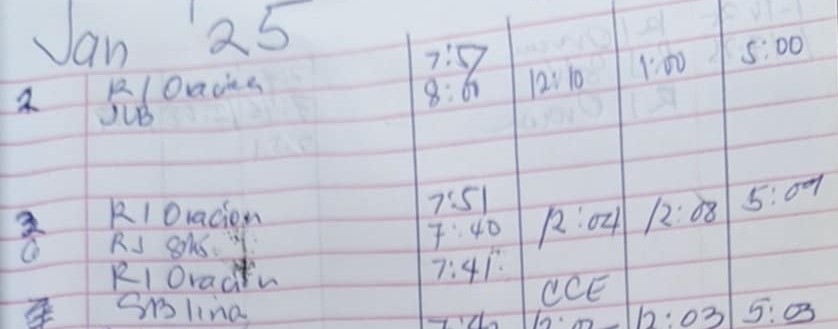 Jan '25
2 R/Oracion 7:57 12:10 1:00 5:00
JLB 8:01
3 R/Oracion 7:51 12:04 12:08 5:07
6 RJ 7:40
R/Oracion 7:41 CCE
7 SB lina 12:03 5:03